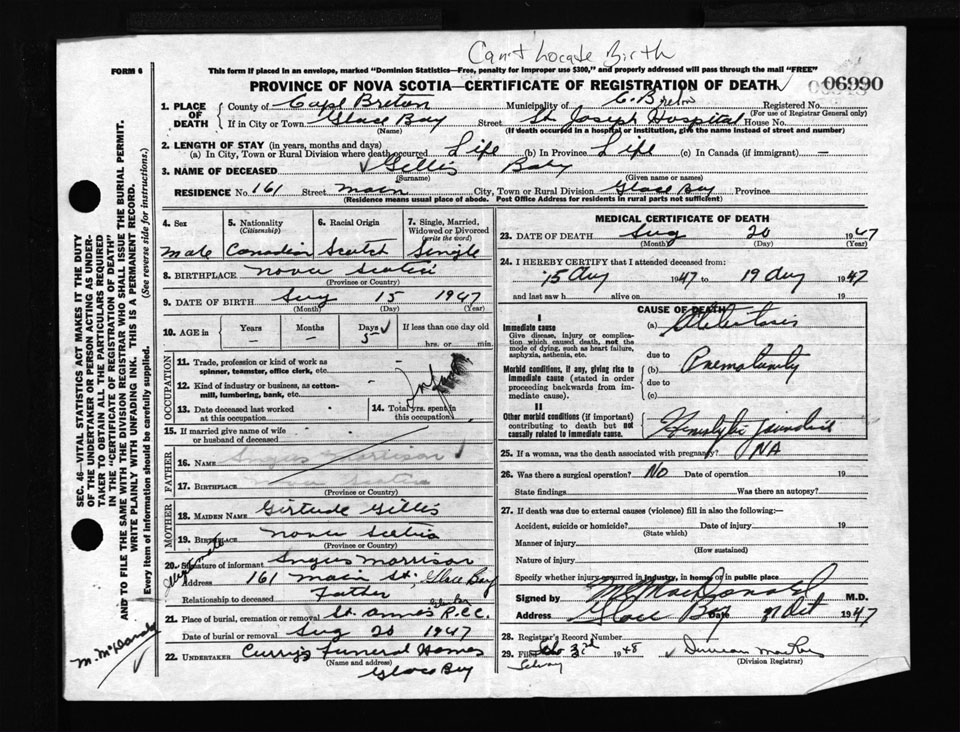 Can't Locate Birth
FORM 6
This form if placed in an envelope, marked "Dominion Statistics—Free, penalty for improper use $300," and properly addressed will pass through the mail "FREE"
PROVINCE OF NOVA SCOTIA—CERTIFICATE OF REGISTRATION OF DEATH
06990
1. PLACE OF DEATH
County of Cape Breton Municipality of C. Breton Registered No.
(For use of Registrar General only)
If in City or Town Glace Bay Street St Joseph Hospital House No.
(Name) (If death occurred in a hospital or institution, give the name instead of street and number)
2. LENGTH OF STAY (in years, months and days)
(a) In City, Town or Rural Division where death occurred Life (b) In Province Life (c) In Canada (if immigrant) —
3. NAME OF DECEASED Gillis Baby
(Surname) (Given name or names)
RESIDENCE No. 161 Street Main City, Town or Rural Division Glace Bay Province
(Residence means usual place of abode. Post Office Address for residents in rural parts not sufficient)
4. Sex
5. Nationality
(Citizenship)
6. Racial Origin
7. Single, Married, Widowed or Divorced
(write the word)
Male Canadian Scotch Single
8. BIRTHPLACE Nova Scotia
(Province or Country)
9. DATE OF BIRTH Aug 15 1947
(Month) (Day) (Year)
10. AGE in
Years
Months
Days
If less than one day old
5
hrs. or min.
OCCUPATION
11. Trade, profession or kind of work as spinner, teamster, office clerk, etc.
12. Kind of industry or business, as cotton-mill, lumbering, bank, etc.
13. Date deceased last worked at this occupation
14. Total yrs. spent in this occupation
Infant
15. If married give name of wife or husband of deceased
FATHER
16. NAME Angus Morrison
17. BIRTHPLACE Nova Scotia
(Province or Country)
MOTHER
18. MAIDEN NAME Gertrude Gillis
19. BIRTHPLACE Nova Scotia
(Province or Country)
20. Signature of informant Angus Morrison
Address 161 Main St. Glace Bay
Relationship to deceased Father
21. Place of burial, cremation or removal St. Annes R.C.C. Glace Bay
Date of burial or removal Aug 20 1947
22. UNDERTAKER Curry's Funeral Homes
(Name and address)
Glace Bay
MEDICAL CERTIFICATE OF DEATH
23. DATE OF DEATH Aug 20 1947
(Month) (Day) (Year)
24. I HEREBY CERTIFY that I attended deceased from:
15 Aug 1947 to 19 Aug 1947
and last saw h alive on 19
CAUSE OF DEATH
I
Immediate cause
Give disease, injury or complication which caused death, not the mode of dying, such as heart failure, asphyxia, asthenia, etc.
(a) Atelectasis
due to
Morbid conditions, if any, giving rise to immediate cause (stated in order proceeding backwards from immediate cause).
(b) Prematurity
due to
(c)
II
Other morbid conditions (if important) contributing to death but not causally related to immediate cause.
Hemolytic jaundice
25. If a woman, was the death associated with pregnancy? NA
26. Was there a surgical operation? No Date of operation 19
State findings Was there an autopsy?
27. If death was due to external causes (violence) fill in also the following:—
Accident, suicide or homicide? Date of injury 19
(State which)
Manner of injury
(How sustained)
Nature of injury
Specify whether injury occurred in industry, in home, or in public place
Signed by MacDonald M.D.
Address Glace Bay Date 21 Oct 1947
28. Registrar's Record Number
29. Filed 3rd 1948 Duncan
(Division Registrar)
SEC. 46—VITAL STATISTICS ACT MAKES IT THE DUTY OF THE UNDERTAKER OR PERSON ACTING AS UNDERTAKER TO OBTAIN ALL THE PARTICULARS REQUIRED IN THE "CERTIFICATE OF REGISTRATION OF DEATH"
AND TO FILE THE SAME WITH THE DIVISION REGISTRAR WHO SHALL ISSUE THE BURIAL PERMIT.
WRITE PLAINLY WITH UNFADING INK. THIS IS A PERMANENT RECORD.
Every item of information should be carefully supplied. (See reverse side for instructions.)
Illegitimate